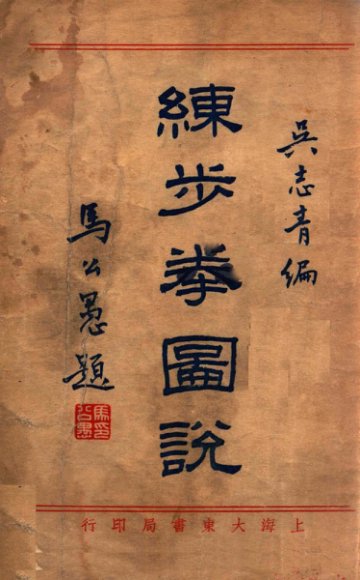 吳志青編
練步拳圖說
馬公愚題
馬印公愚
上海大東書局印行